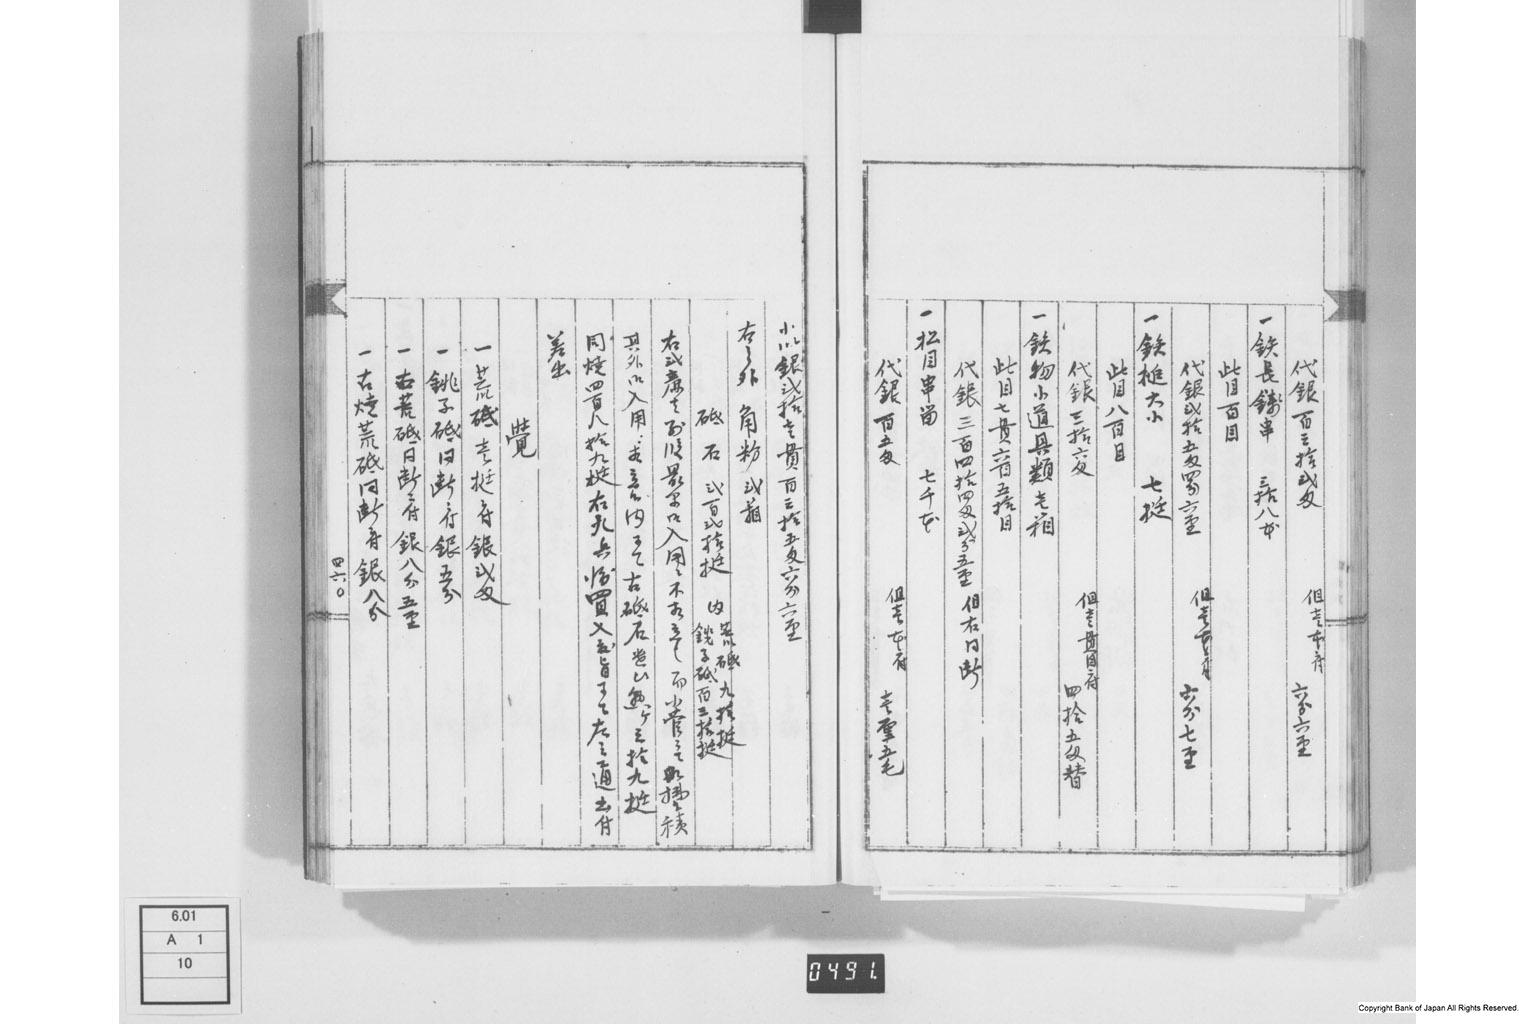 代銀百三拾弐匁 但壱本ニ付 六分六厘
一鉄長鏈串 三拾八本
此目百目
代銀弐拾五匁四分六厘 但壱本ニ付 六分七厘
一鉄槌大小 七挺
此目八百目
代銀三拾六匁 但壱貫目ニ付 四拾五匁替
一鉄物小道具類 壱箱
此目七貫六百五拾目
代銀三百四拾四匁弐分五厘 但右同断
一松目串留 七千本
代銀百五匁 但壱本ニ付 壱厘五毛
小以銀弐拾壱貫百三拾五匁六分六厘
右之外 角粉 弐箱
砥石 弐百弐拾挺 内
荒砥 九拾挺
銚子砥 百三拾挺
右弐廉
其外御入用 古砥石 三拾九挺
同焼四百八拾九挺 買入 左之通
差出
覚
一荒砥 壱挺ニ付 銀弐匁
一銚子砥 同断ニ付 銀五分
一古荒砥 同断ニ付 銀八分五厘
一古焼荒砥 同断ニ付 銀八分
四六〇
6.01
A 1
10
0491.
Copyright Bank of Japan All Rights Reserved.